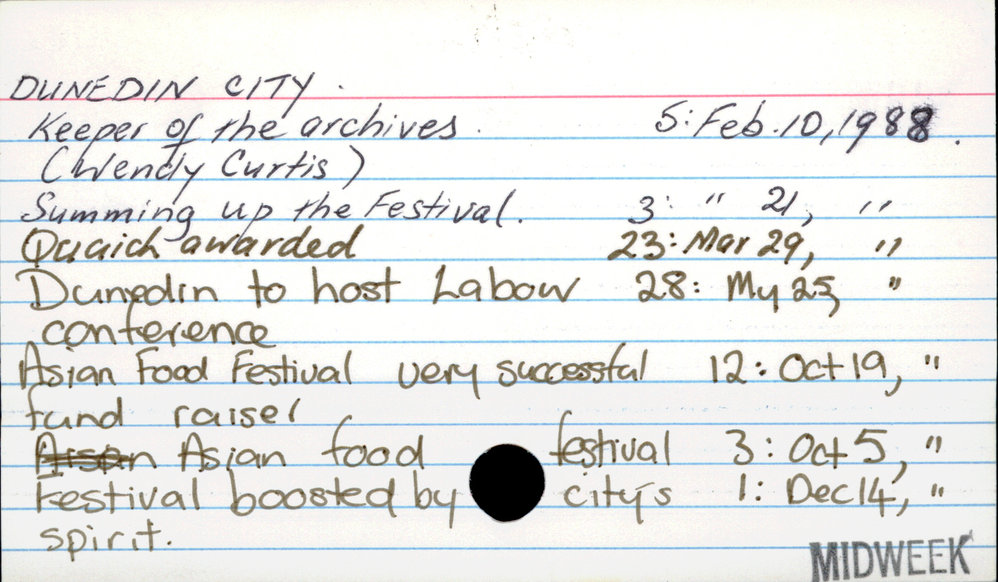 DUNEDIN CITY.
Keeper of the archives. 5: Feb. 10, 1988.
(Wendy Curtis)
Summing up the Festival. 3: " 21, "
Quaich awarded 23: Mar 29, "
Dunedin to host Labour 28: My 25, "
conference
Asian Food Festival very successful 12: Oct 19, "
fund raiser
Asian food festival 3: Oct 5, "
Festival boosted by city's 1: Dec 14, "
spirit.
MIDWEEK